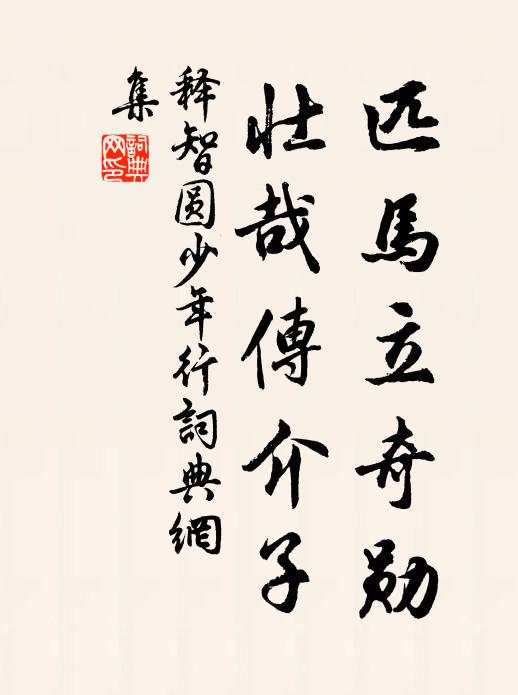 匹馬立奇勋
壮哉傳介子
释智圆少年行詞典網
集
詞典網印